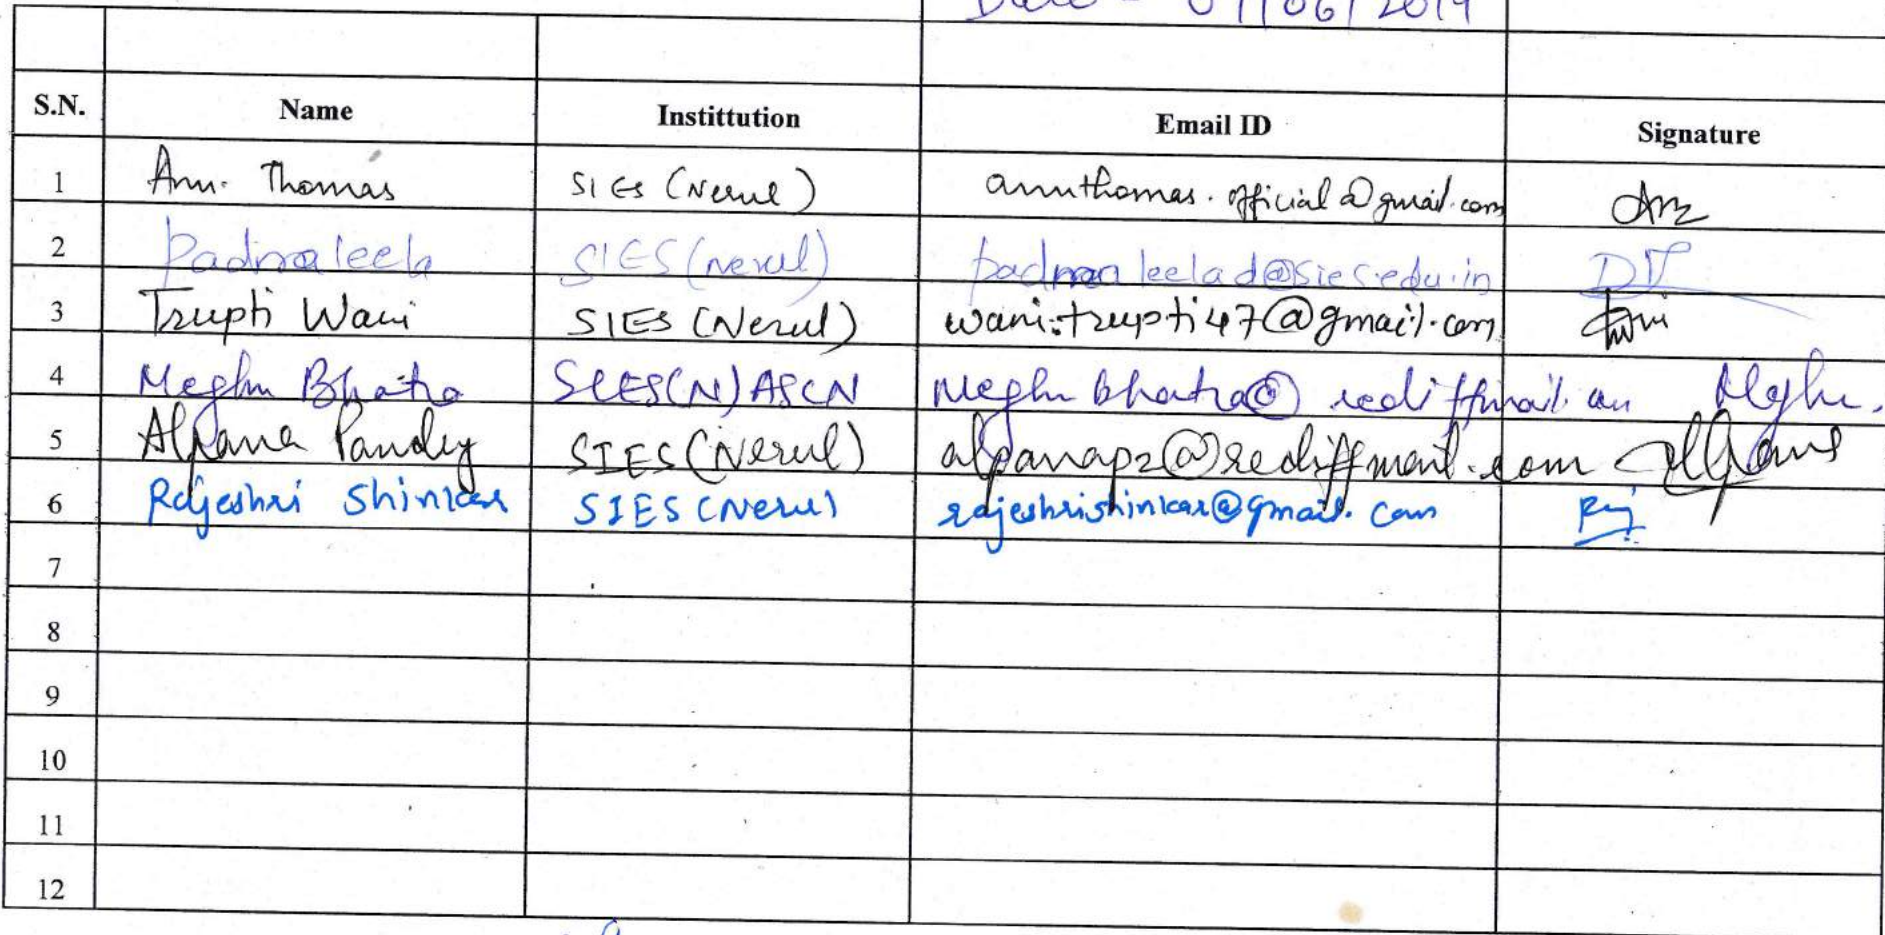 Date - 07/06/2019
S.N. Name Instittution Email ID Signature
1 Ann. Thomas SIES (Nerul) annthomas.official@gmail.com
2 Padmaleela SIES (nerul) padmaleelad@sies.edu.in
3 Trupti Wani SIES (Nerul) wani.trupti47@gmail.com
4 Megha Bhatia SIES(N)ASCN
5 Alpana Pandey SIES (Nerul) alpanap2@rediffmail.com
6 Rajeshri Shinkar SIES (Nerul) rajeshrishinkar@gmail.com
7
8
9
10
11
12